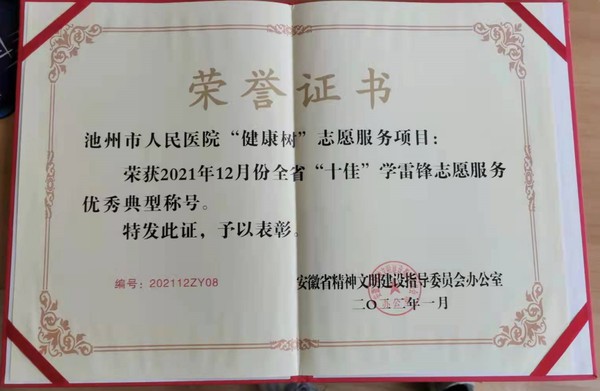 荣誉证书
池州市人民医院“健康树”志愿服务项目：
荣获2021年12月份全省“十佳”学雷锋志愿服务
优秀典型称号。
特发此证，予以表彰。
编号：202112ZY08
安徽省精神文明建设指导委员会办公室
二〇二二年一月